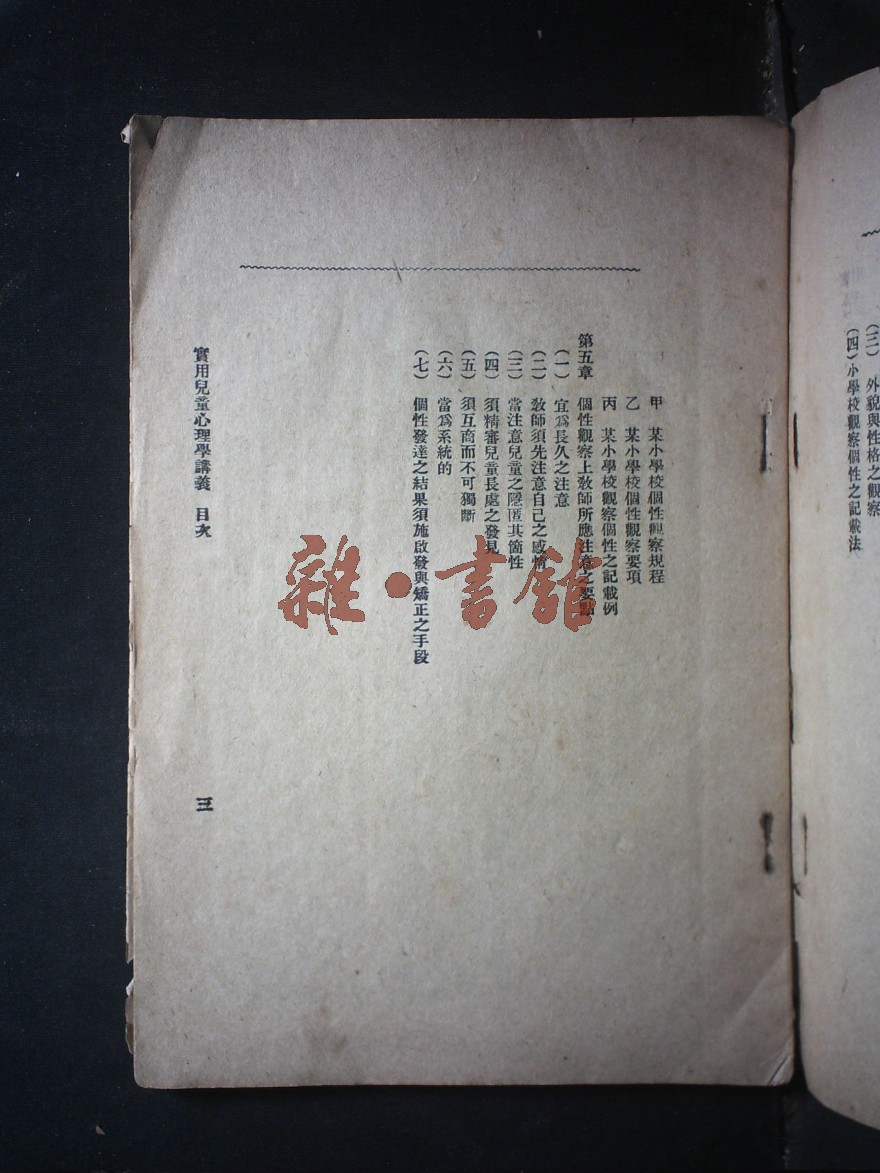 (三)　外貌與性格之觀察
(四)小學校觀察個性之記載法
甲　某小學校個性觀察規程
乙　某小學校個性觀察要項
丙　某小學校觀察個性之記載例
第五章　個性觀察上教師所應注意之要點
(一)　宜爲長久之注意
(二)　教師須先注意自己之感情
(三)　當注意兒童之隱匿其箇性
(四)　須精審兒童長處之發見
(五)　須互商而不可獨斷
(六)　當爲系統的
(七)　個性發達之結果須施啟發與矯正之手段
實用兒童心理學講義　目次
三
雜·書館